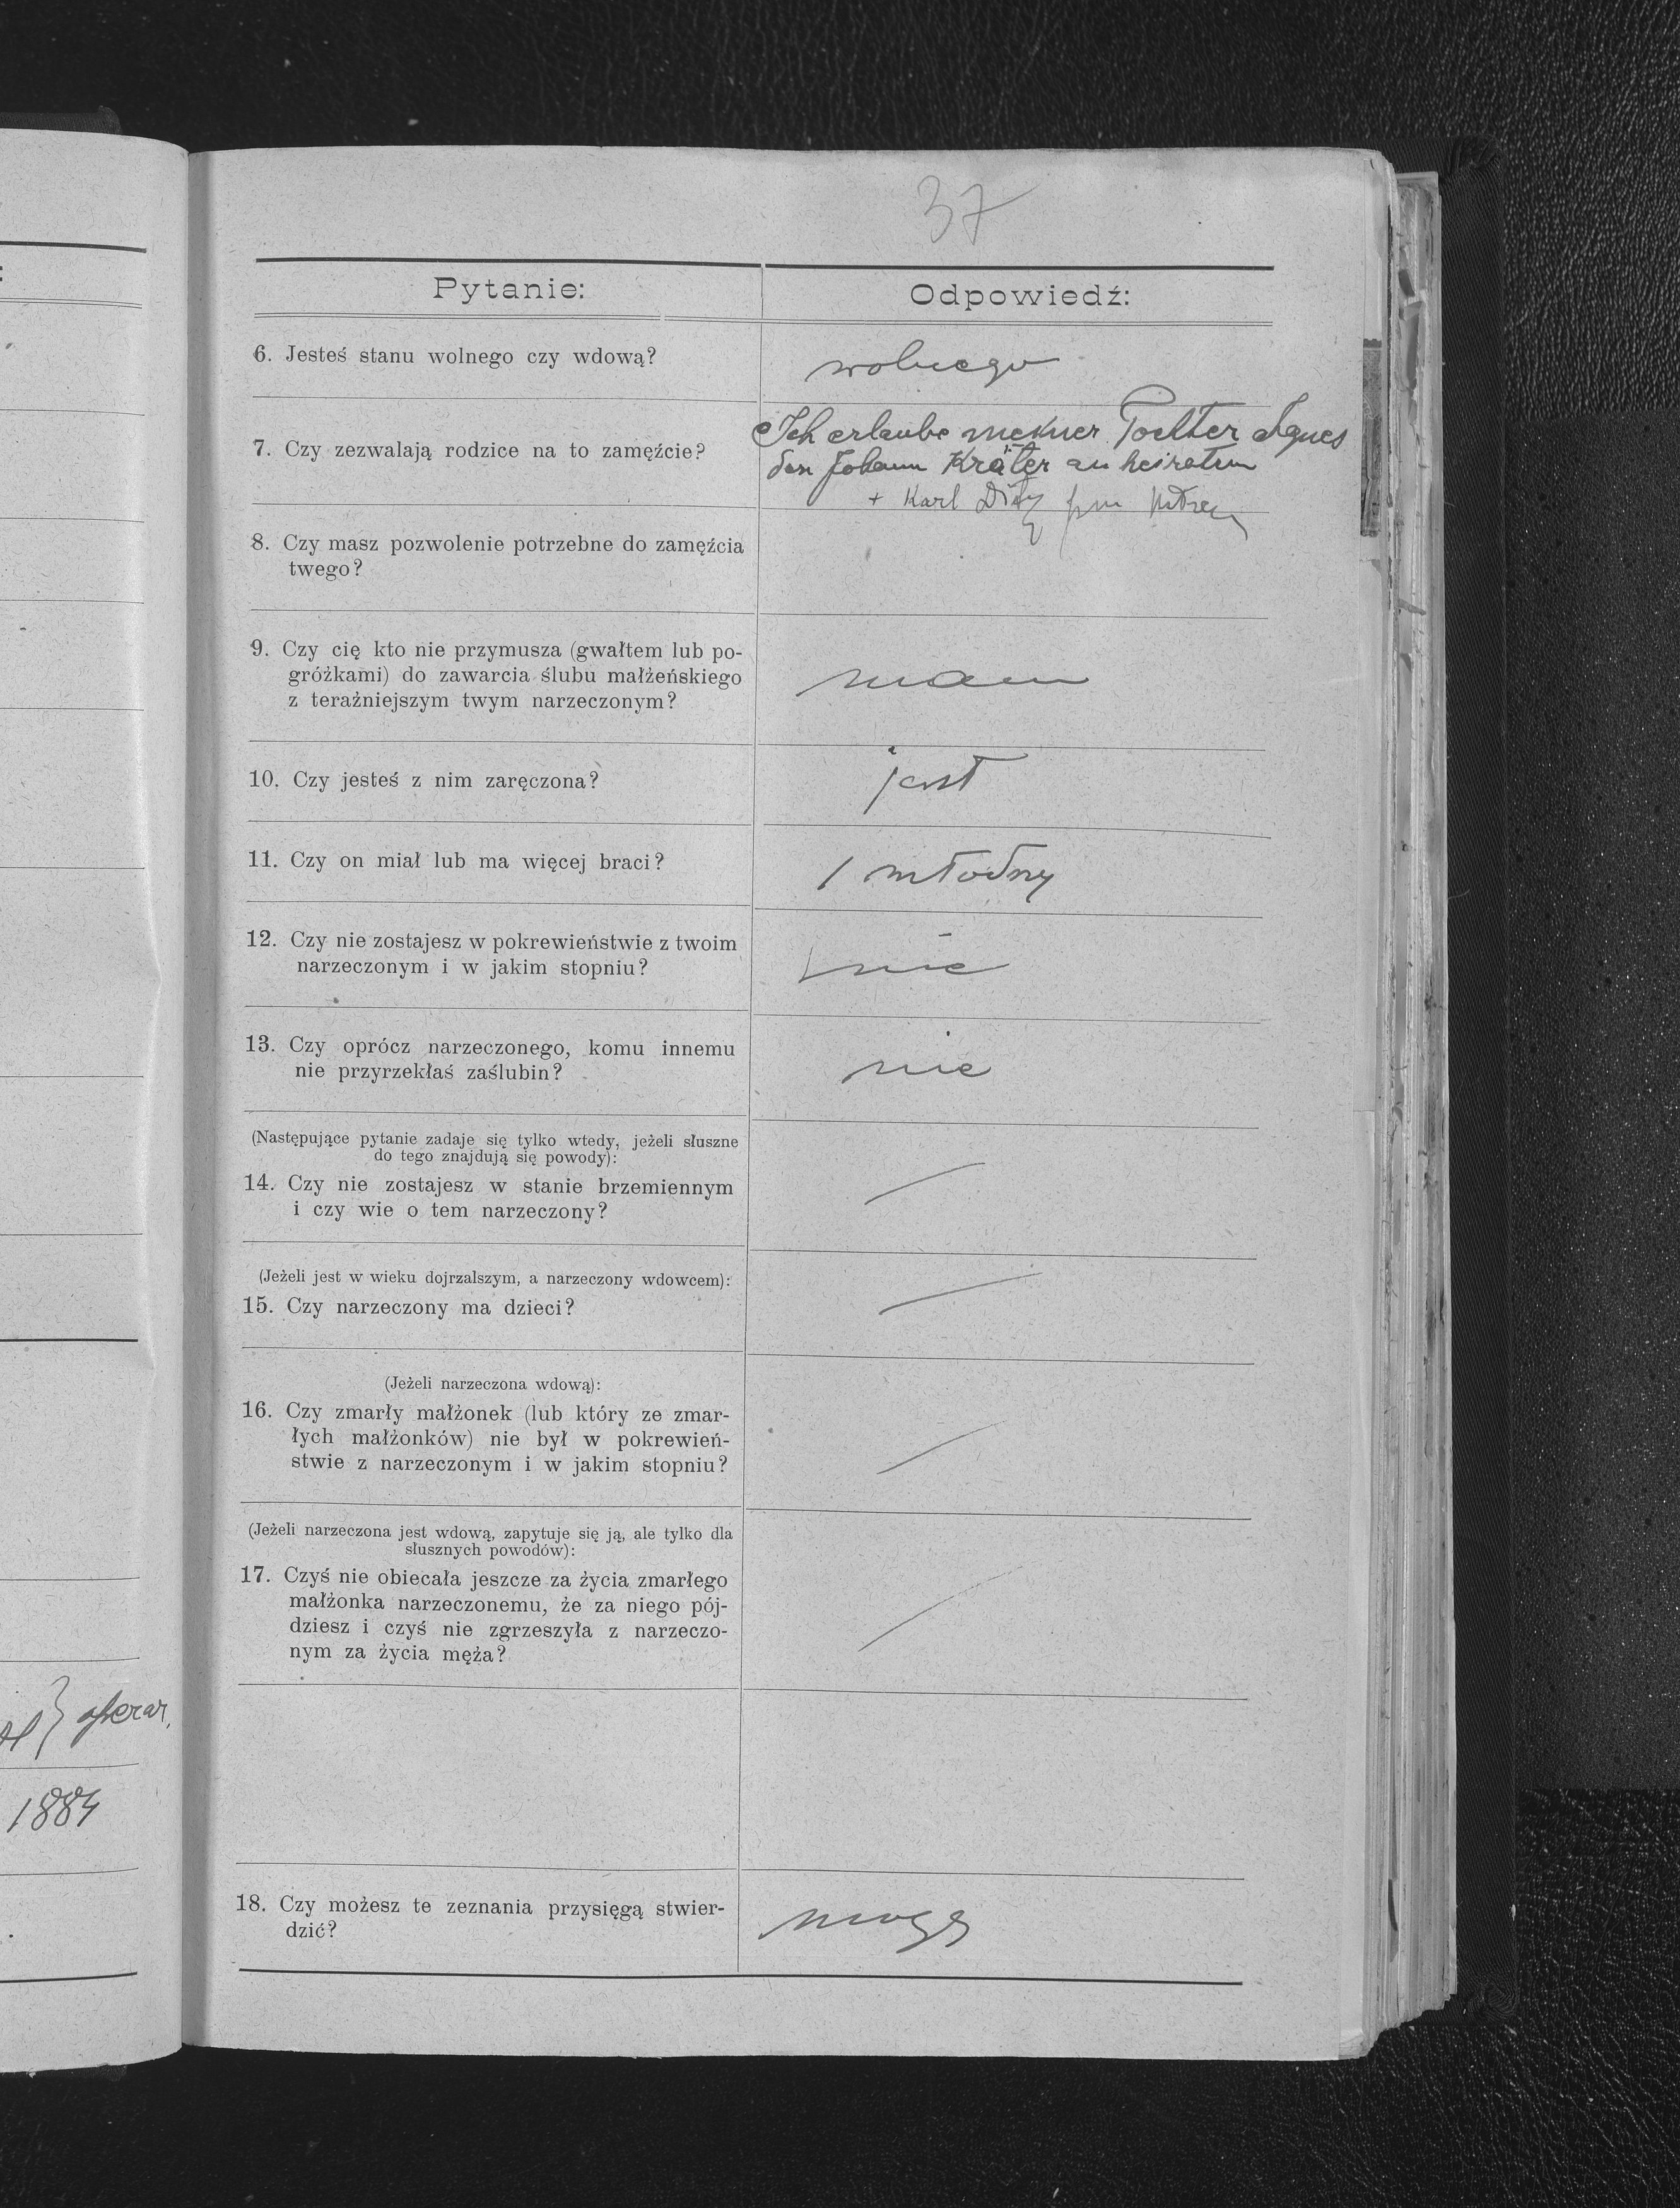 37
Pytanie:
Odpowiedź:
6. Jesteś stanu wolnego czy wdową?
wolnego
7. Czy zezwalają rodzice na to zamęźcie?
Ich erlaube meiner Tochter Agnes
den Johann Kräter zu heiraten
+ Karl
8. Czy masz pozwolenie potrzebne do zamęźcia
twego?
9. Czy cię kto nie przymusza (gwałtem lub po-
gróżkami) do zawarcia ślubu małżeńskiego
z teraźniejszym twym narzeczonym?
mam
10. Czy jesteś z nim zaręczona?
jest
11. Czy on miał lub ma więcej braci?
1 młodszy
12. Czy nie zostajesz w pokrewieństwie z twoim
narzeczonym i w jakim stopniu?
nie
13. Czy oprócz narzeczonego, komu innemu
nie przyrzekłaś zaślubin?
nie
(Następujące pytanie zadaje się tylko wtedy, jeżeli słuszne
do tego znajdują się powody):
14. Czy nie zostajesz w stanie brzemiennym
i czy wie o tem narzeczony?
(Jeżeli jest w wieku dojrzalszym, a narzeczony wdowcem):
15. Czy narzeczony ma dzieci?
(Jeżeli narzeczona wdową):
16. Czy zmarły małżonek (lub który ze zmar-
łych małżonków) nie był w pokrewień-
stwie z narzeczonym i w jakim stopniu?
(Jeżeli narzeczona jest wdową, zapytuje się ją, ale tylko dla
słusznych powodów):
17. Czyś nie obiecała jeszcze za życia zmarłego
małżonka narzeczonemu, że za niego pój-
dziesz i czyś nie zgrzeszyła z narzeczo-
nym za życia męża?
1884
18. Czy możesz te zeznania przysięgą stwier-
dzić?
mogę